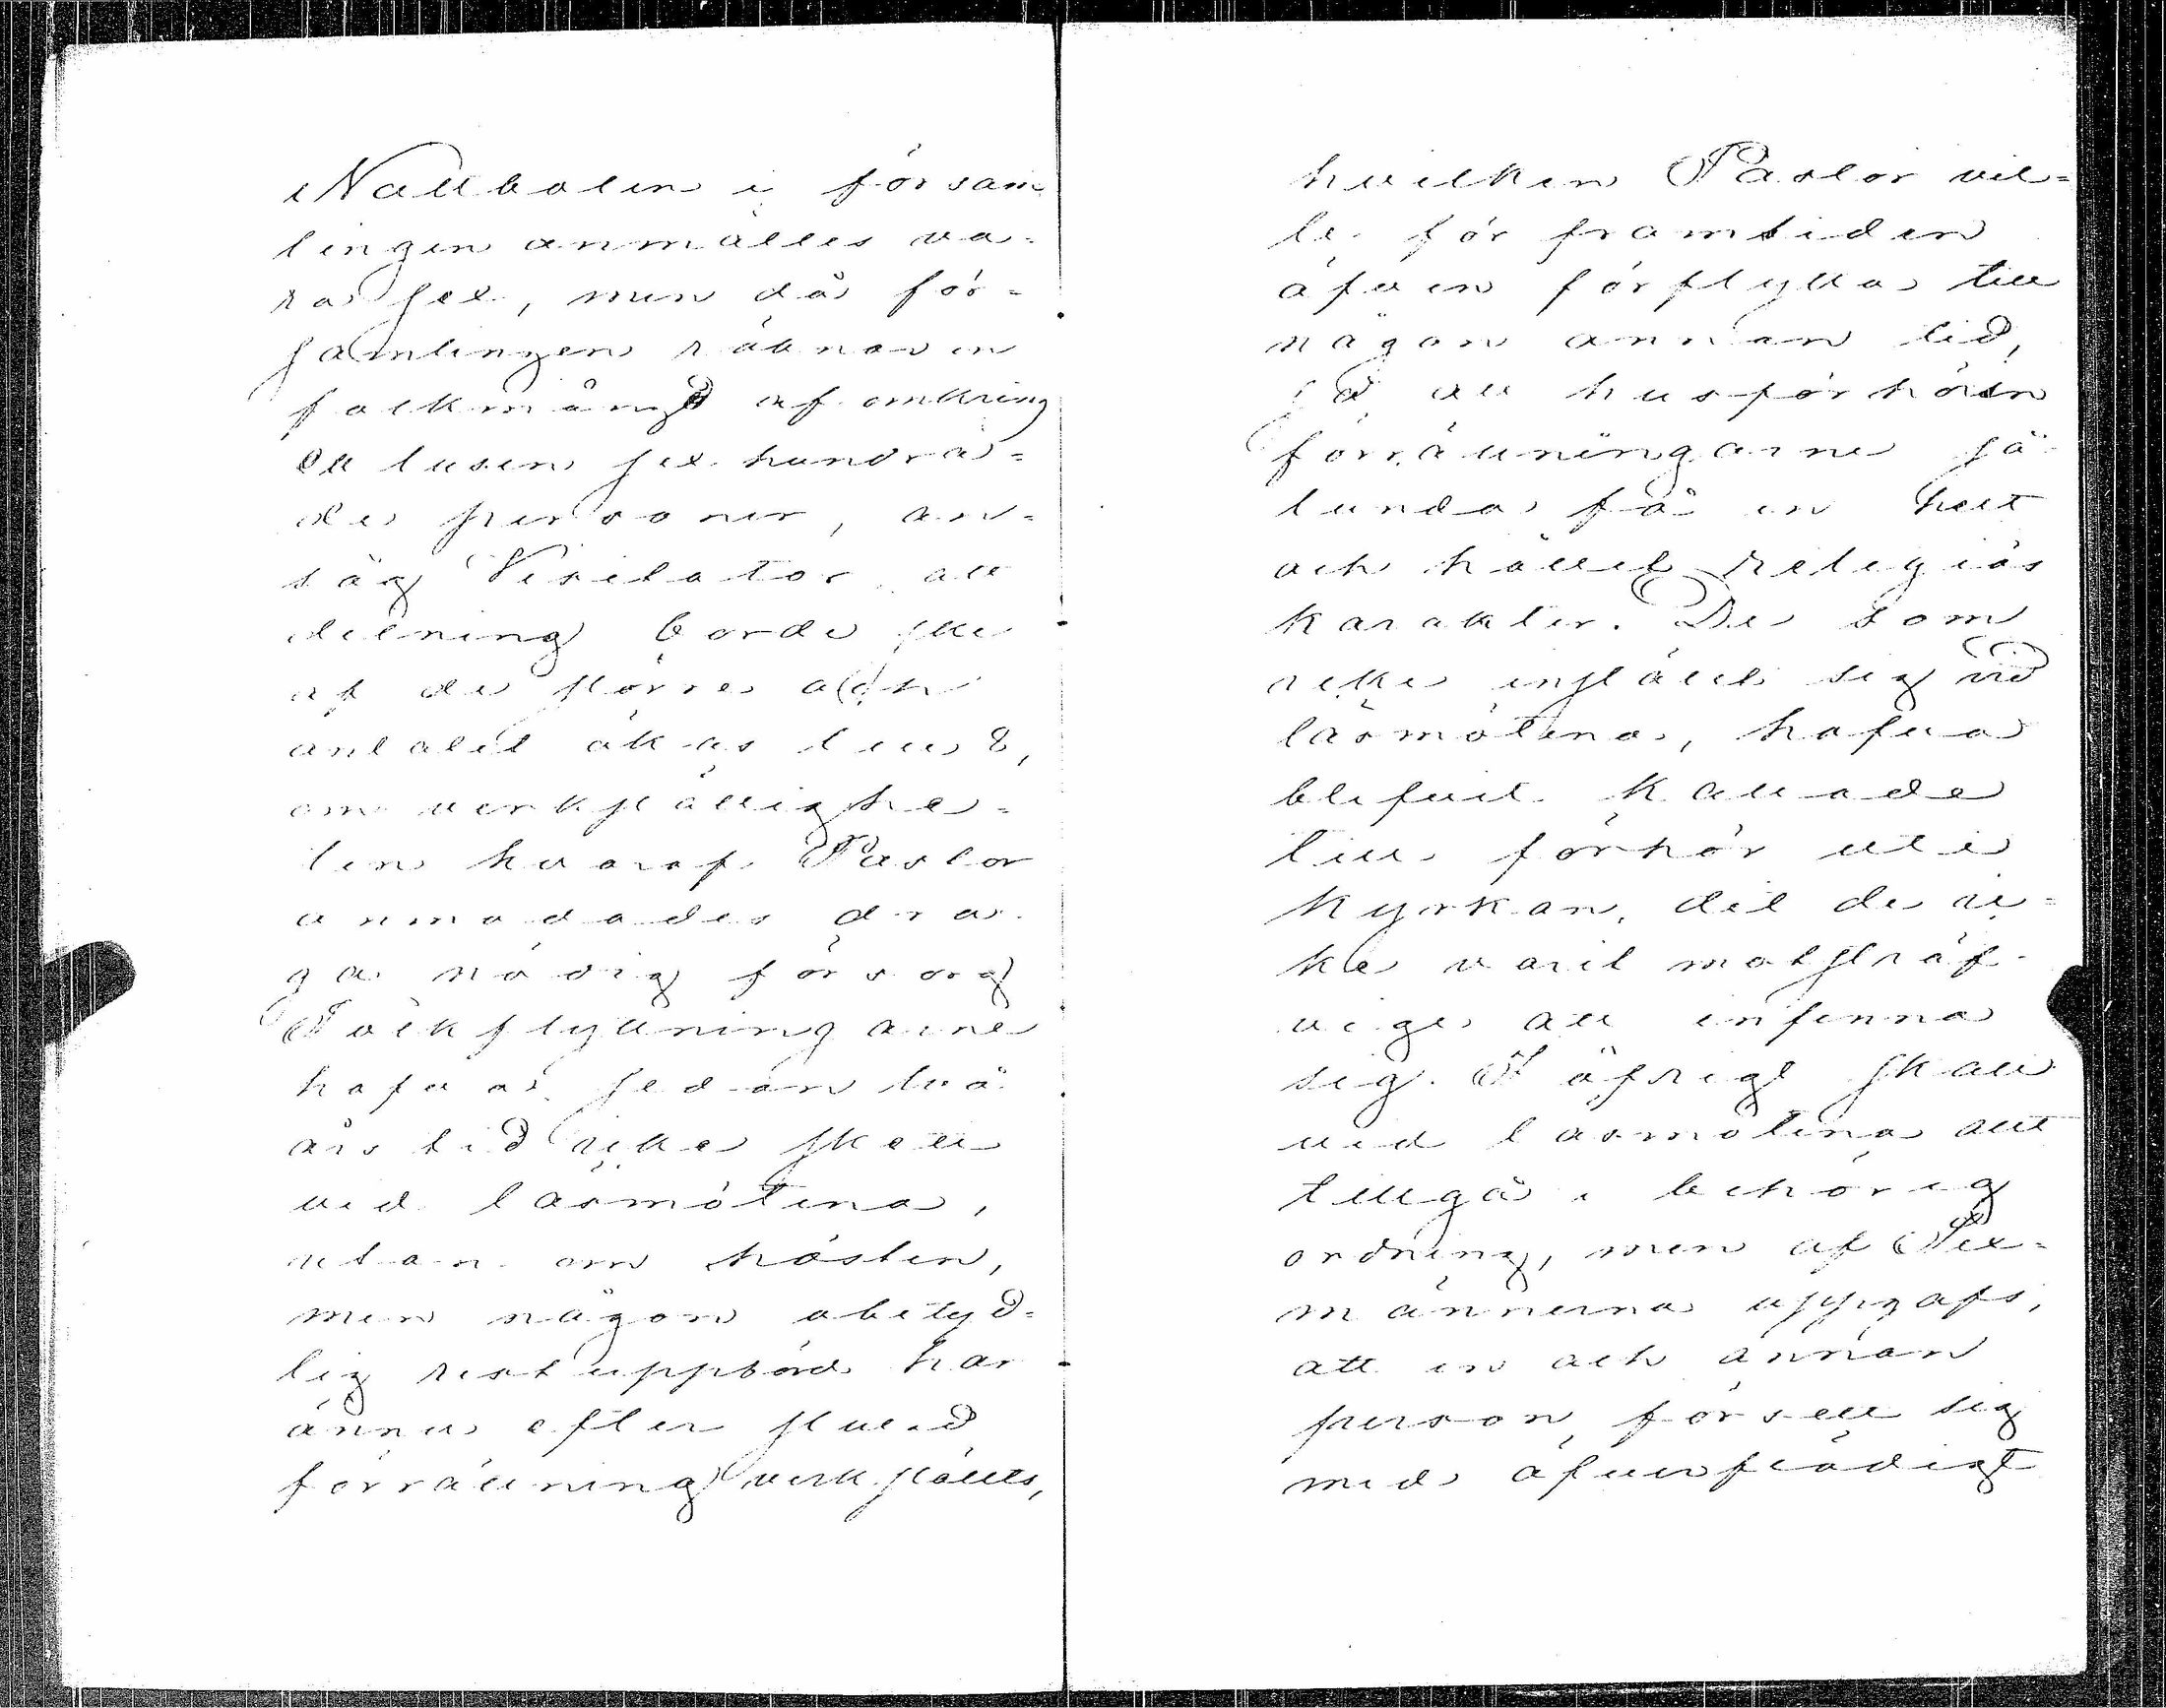 Nattbolen i försam
lingen anmältes va-
ra sex, men då för-
samlingen räknar en
folkmängd af omkring
ett tusen sex hundra-
de personer, an-
såg Visitator att
delning borde ske
af de större och
antalet ökas till 8,
om verkställighe-
ten hvaraf Pastor
anmodades dra-
ga nödig försorg
Folkflyttningarne
hafva sedan två
års tid icke skett
vid läsmötena,
utan om hösten,
men någon obetyd-
lig restuppbörd har
ännu efter slutad
förrättning verkstälts,
hvilken Pastor vil-
le för framtiden
äfven förflytta till
någon annan tid,
så att husförhörsn
förrättningarne så
lunda få en helt
och hållet religiös
karakter. De som
icke inställt sig vid
läsmötena, hafva
blifvit kallade
till förhör uti
kyrkan, dit de ic-
ke varit motsträf-
vige att infinna
sig. I öfrigt skall
vid läsmötena allt
tillgå i behörig
ordning, men af Sex-
männerna uppgafs,
att en och annan
person försett sig
med öfverflödigt